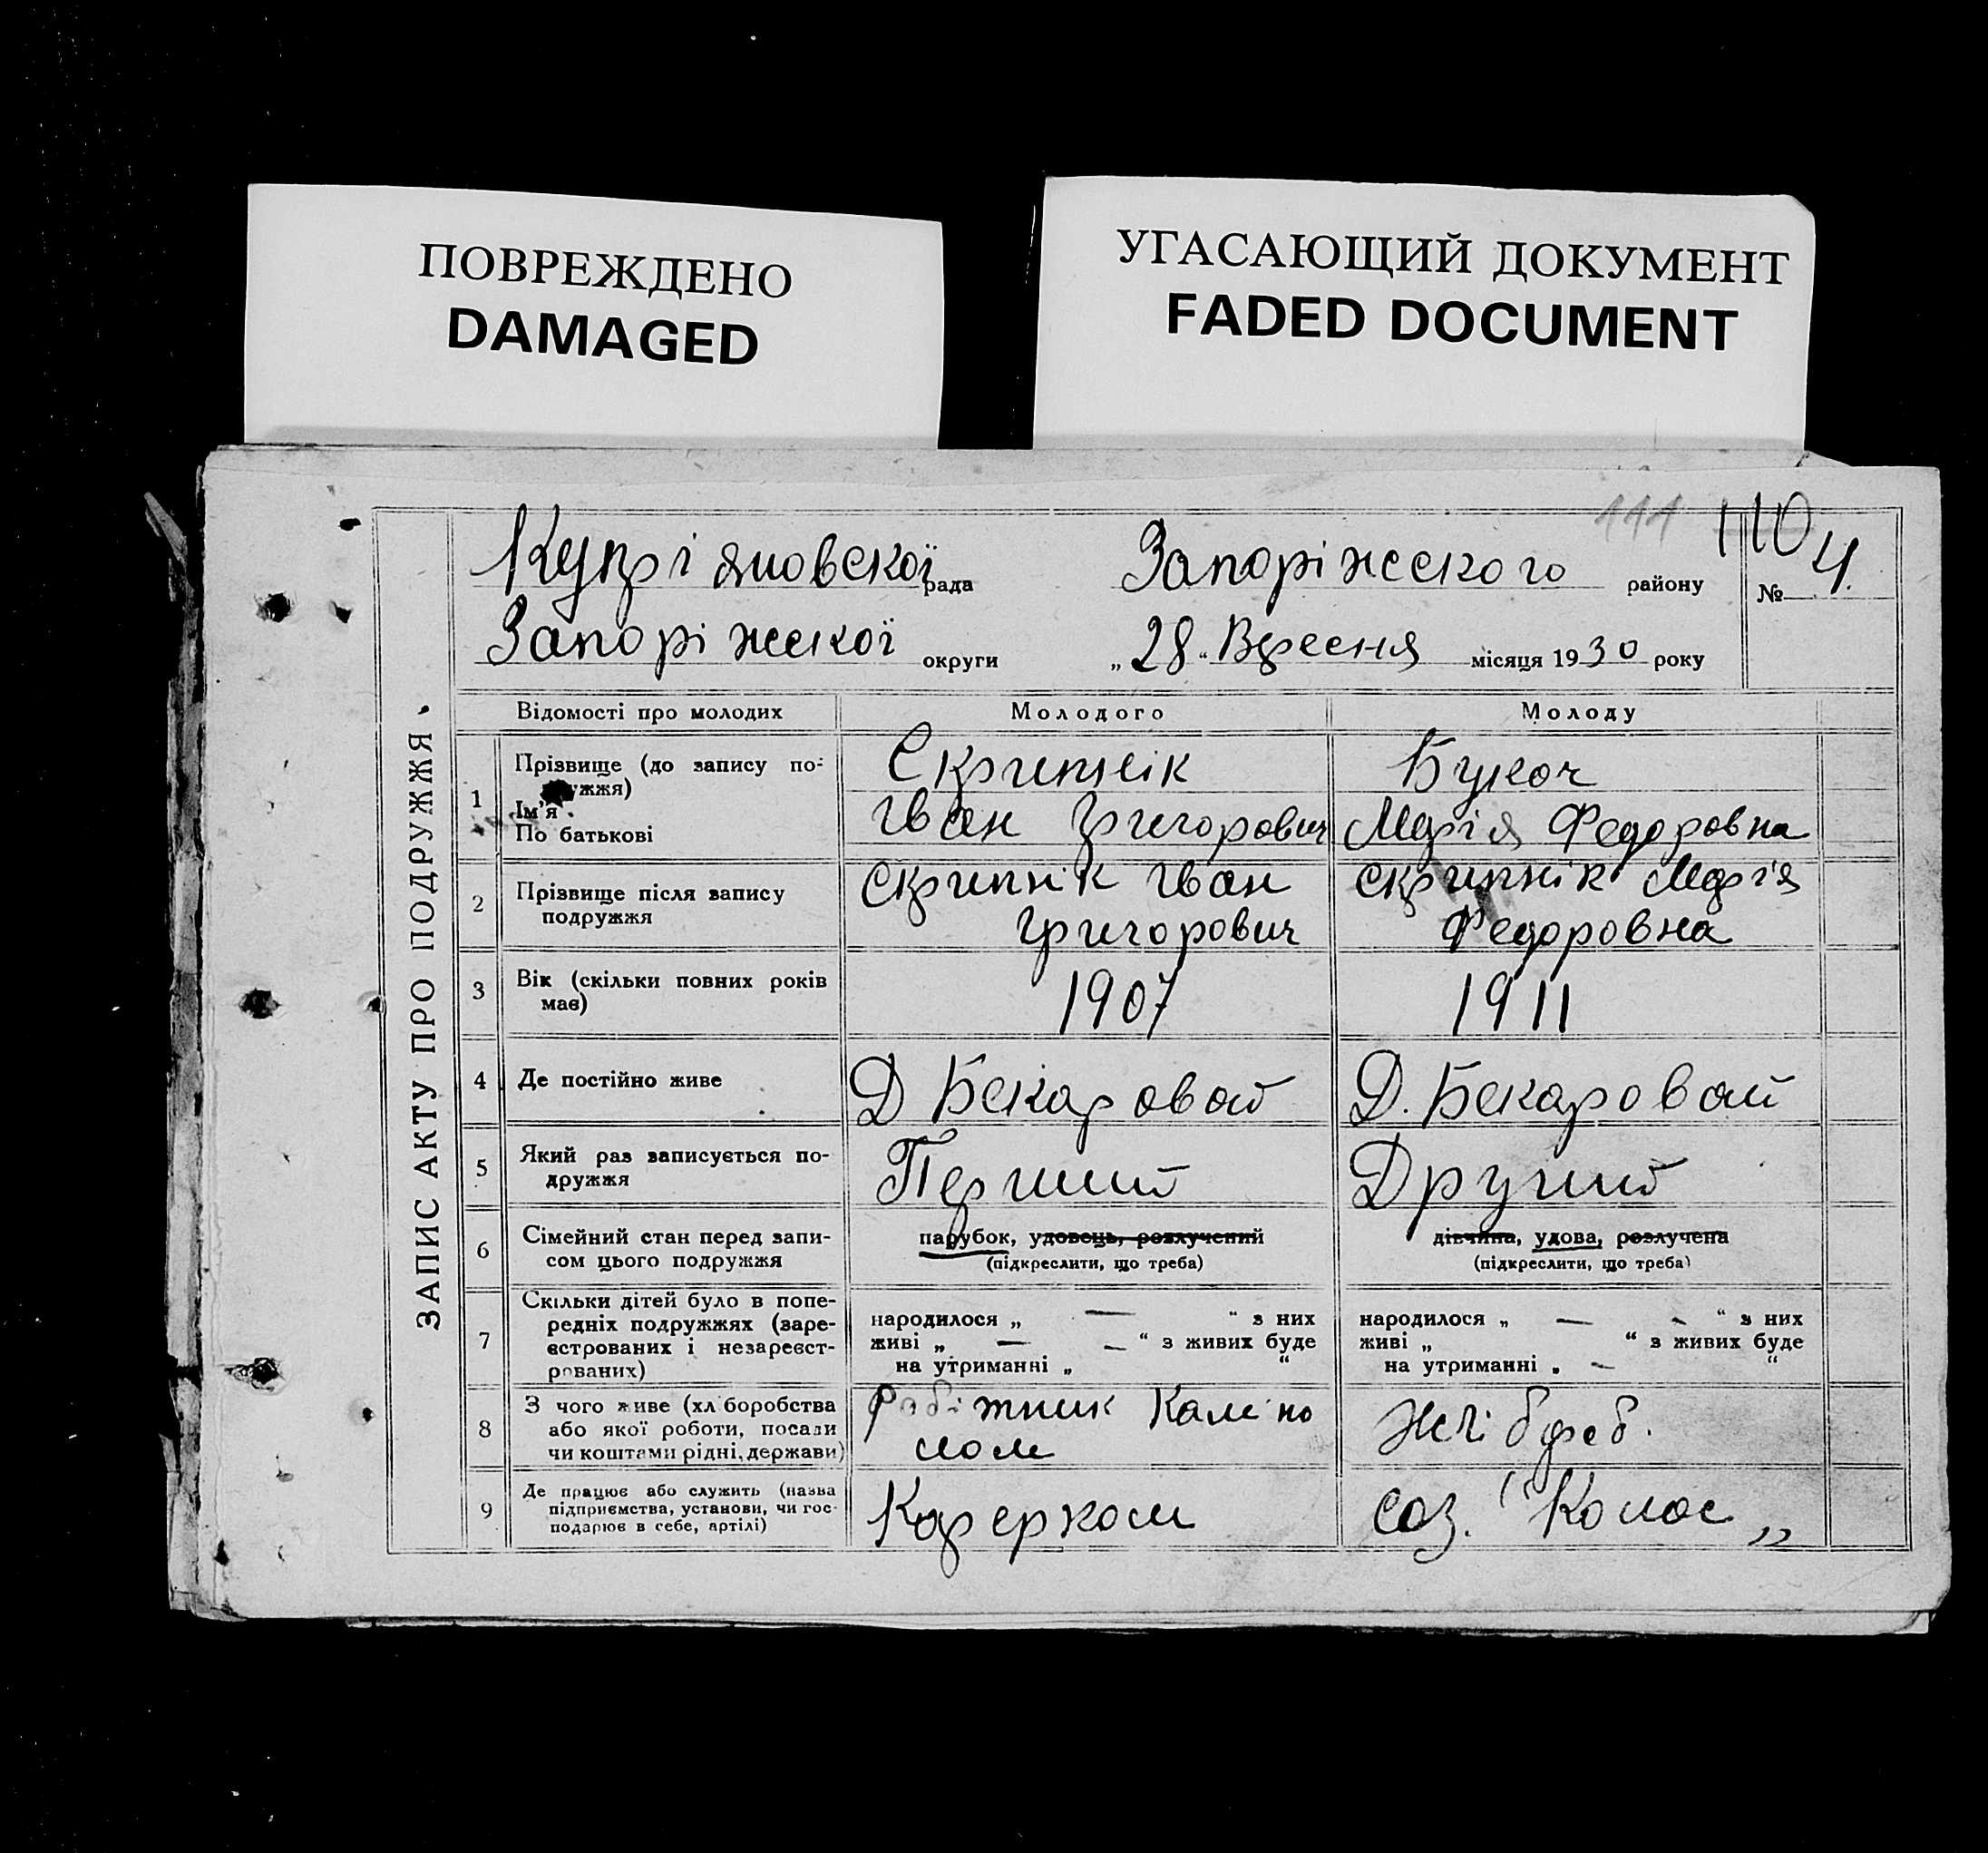 ПОВРЕЖДЕНО
DAMAGED
УГАСАЮЩИЙ ДОКУМЕНТ
FADED DOCUMENT
111 110
Купріяновской рада Запоріжского району № 4.
Запоріжскої округи „28“ Вресня місяця 1930 року
ЗАПИС АКТУ ПРО ПОДРУЖЖЯ.
Відомості про молодих Молодого Молоду
1 Прізвище (до запису по-
дружжя)
Ім'я
По батькові
Скрипнік
Іван Григорович
Марія Федоровна
2 Прізвище після запису
подружжя
Скрипнік Іван
Григорович
Скрипнік Марія
Федоровна
3 Вік (скільки повних років
має)
1907
1911
4 Де постійно живе
Д Бекаровой
Д. Бекаровай
5 Який раз записується по-
дружжя
Перший
Другий
6 Сімейний стан перед запи-
сом цього подружжя
парубок, удовець, розлучений
(підкреслити, що треба)
дівчина, удова, розлучена
(підкреслити, що треба)
7 Скільки дітей було в попе-
редніх подружжях (заре-
єстрованих і незареєст-
рованих)
народилося „ — “ з них
живі „ — — “ з живих буде
на утриманні „ “
народилося „ — - “ з них
живі „ “ з живих буде
на утриманні „ - “
8 З чого живе (хліборобства
або якої роботи, посади
чи коштами рідні, держави)
Робітник
Хлібороб.
9 Де працює або служить (назва
підприємства, установи, чи гос-
подарює в себе, артілі)
соз. "Колос„